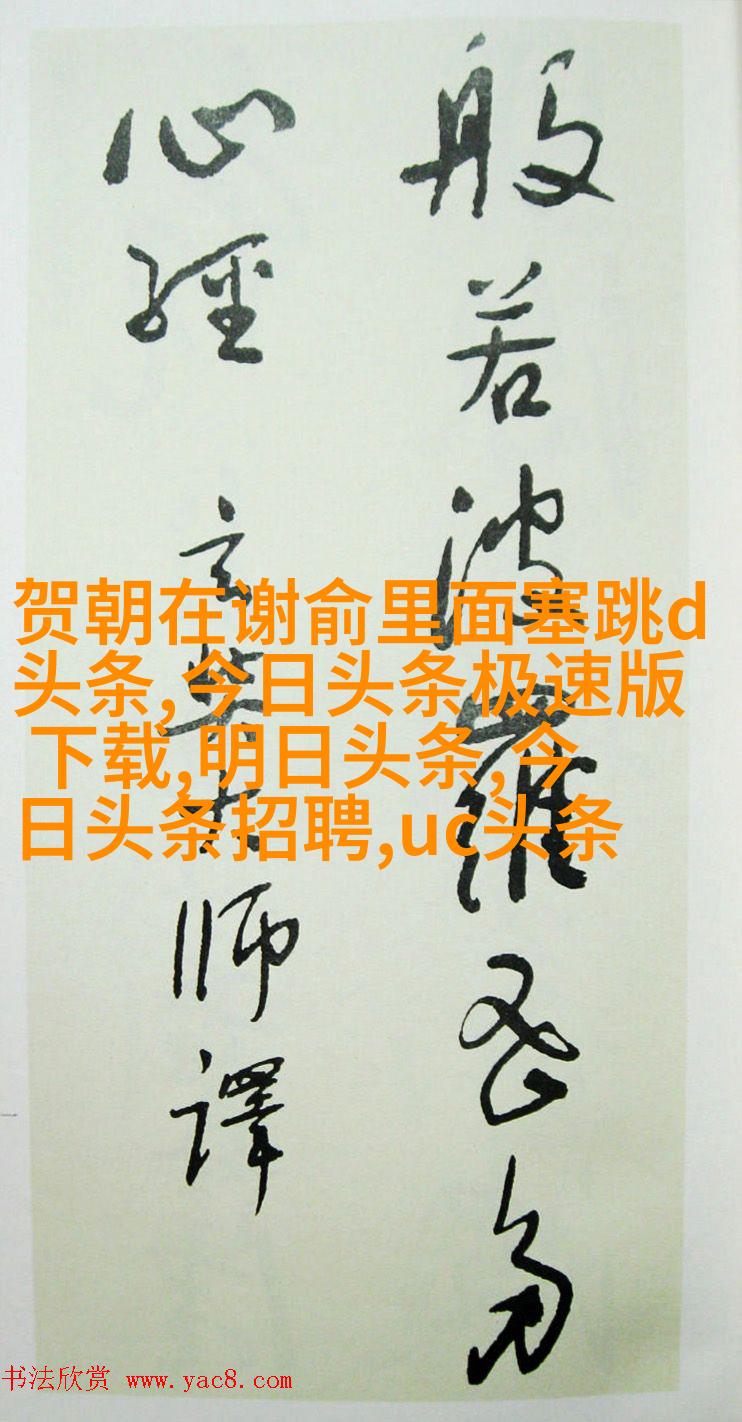 般若波羅蜜多
心經 玄奘大師譯
贺朝在谢俞里面塞跳d
头条,今日头条极速版
下载,明日头条,今
日头条招聘,uc头条
书法欣赏 www.yac8.com